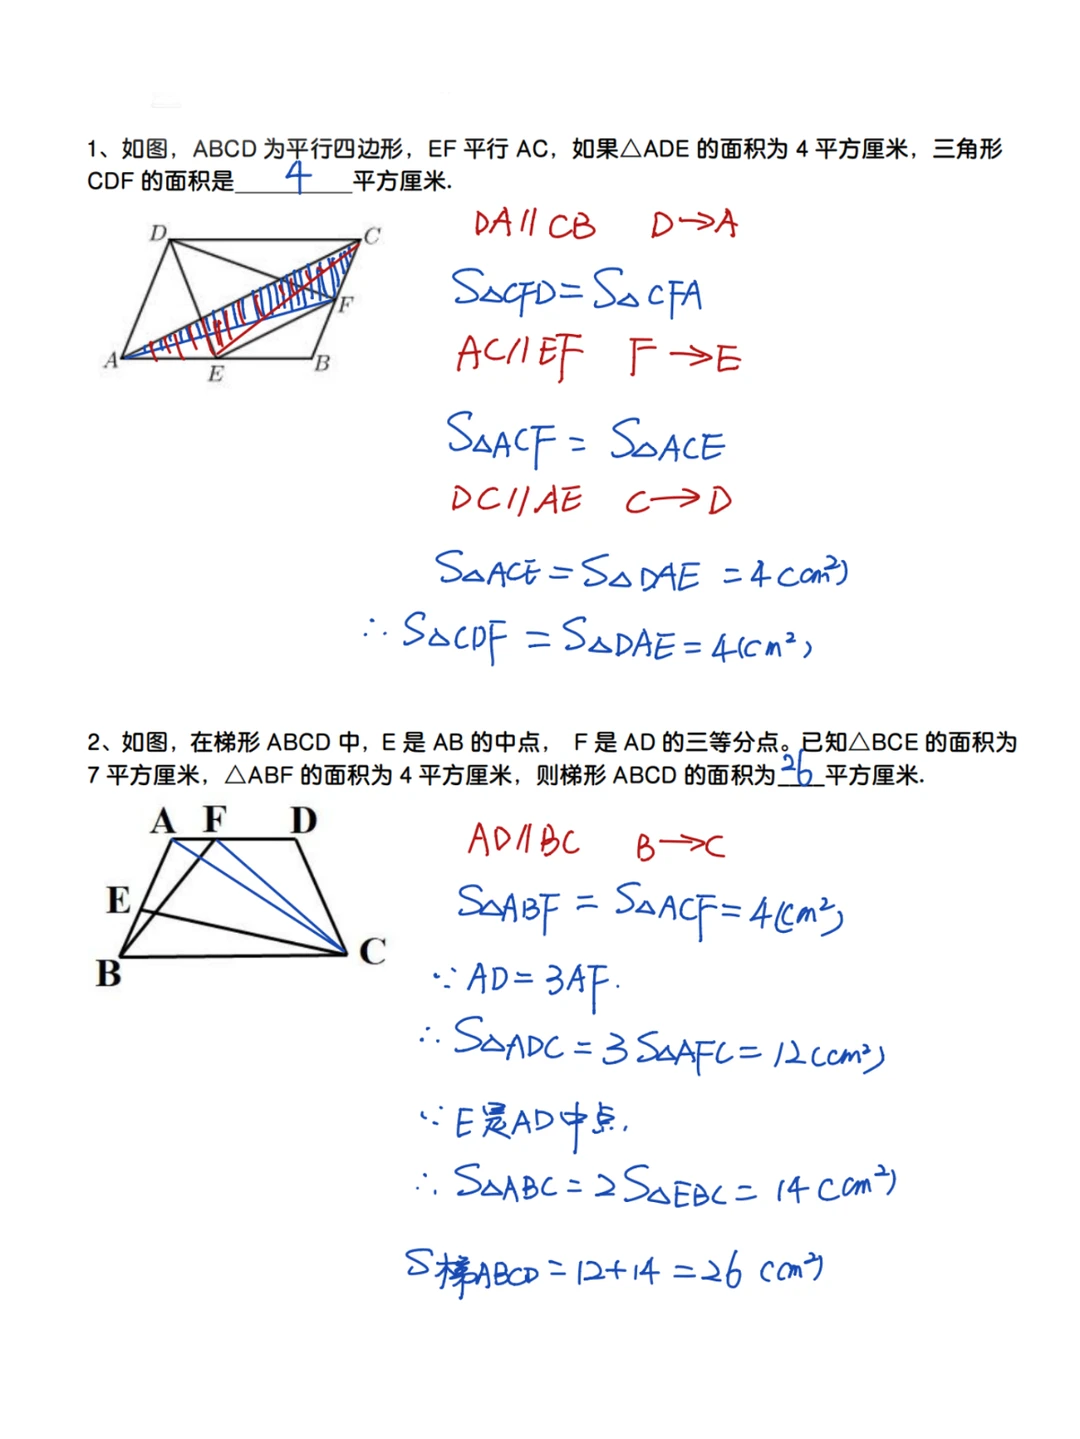 1、如图，ABCD 为平行四边形，EF 平行 AC，如果△ADE 的面积为 4 平方厘米，三角形
CDF 的面积是 4 平方厘米.
D
C
F
A
E
B
DA∥CB D→A
S△CFD=S△CFA
AC∥EF F→E
S△ACF=S△ACE
DC∥AE C→D
S△ACE=S△DAE=4(cm²)
∴S△CDF=S△DAE=4(cm²)
2、如图，在梯形 ABCD 中，E 是 AB 的中点， F 是 AD 的三等分点。已知△BCE 的面积为
7 平方厘米，△ABF 的面积为 4 平方厘米，则梯形 ABCD 的面积为 26 平方厘米.
A F D
E
B
C
AD∥BC B→C
S△ABF=S△ACF=4(cm²)
∵AD=3AF.
∴S△ADC=3S△AFC=12(cm²)
∵E是AD中点.
∴S△ABC=2S△EBC=14(cm²)
S梯ABCD=12+14=26(cm²)